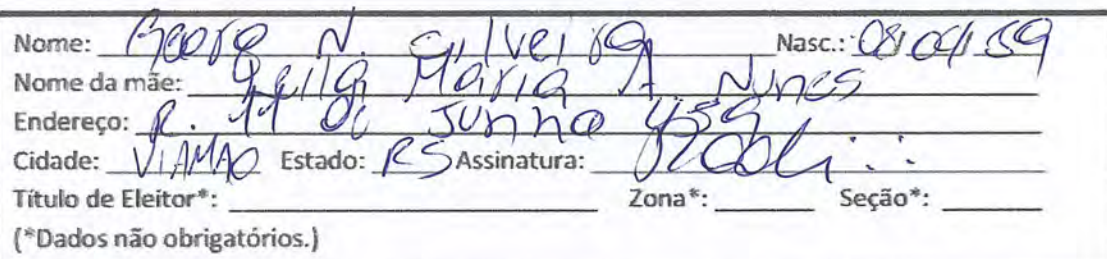 Nome: N. Silveira Nasc.: 08/04/59
Nome da mãe: Leila Maria A. Nunes
Endereço: R. 11 de Junho 459
Cidade: VIAMAO Estado: RS Assinatura:
Título de Eleitor*: Zona*: Seção*:
(*Dados não obrigatórios.)